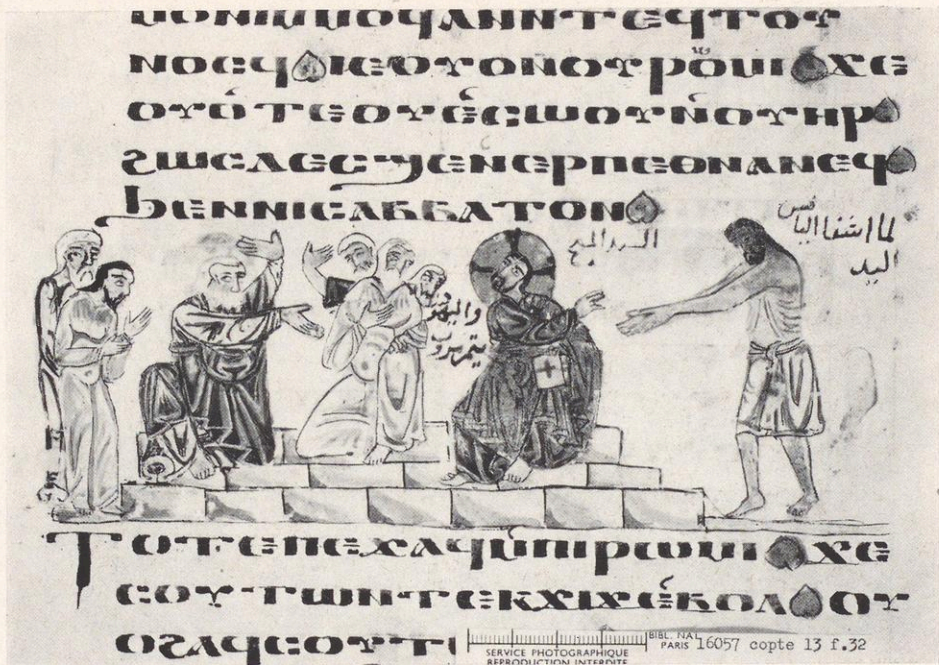 ⲙⲟⲛⲓⲙⲙⲟϥⲁⲛⲛⲧⲉϥⲧⲟⲩ
ⲛⲟⲥϥ ⲓⲉⲟⲩⲟⲛⲟⲩⲣⲱⲙⲓ ϫⲉ
ⲟⲩⲟⲧⲉⲟⲩⲉⲥⲱⲟⲩⲛⲟⲩⲏⲣ
ϩⲱⲥⲇⲉⲥϣⲉⲛⲉⲣⲡⲉⲑⲛⲁⲛⲉϥ
ϧⲉⲛⲛⲓⲥⲁⲃⲃⲁⲧⲟⲛ
السيد المسيح
لما اشفا اليابس
اليد
واليهود
ⲧⲟⲧⲉⲡⲉϫⲁϥⲙⲡⲓⲣⲱⲙⲓ ϫⲉ
ⲥⲟⲩⲧⲱⲛⲧⲉⲕϫⲓϫⲉⲃⲟⲗ ⲟⲩ
ⲟϩⲁϥⲥⲟⲩⲧ
SERVICE PHOTOGRAPHIQUE
REPRODUCTION INTERDITE
BIBL. NAT.
PARIS 16057 copte 13 f.32